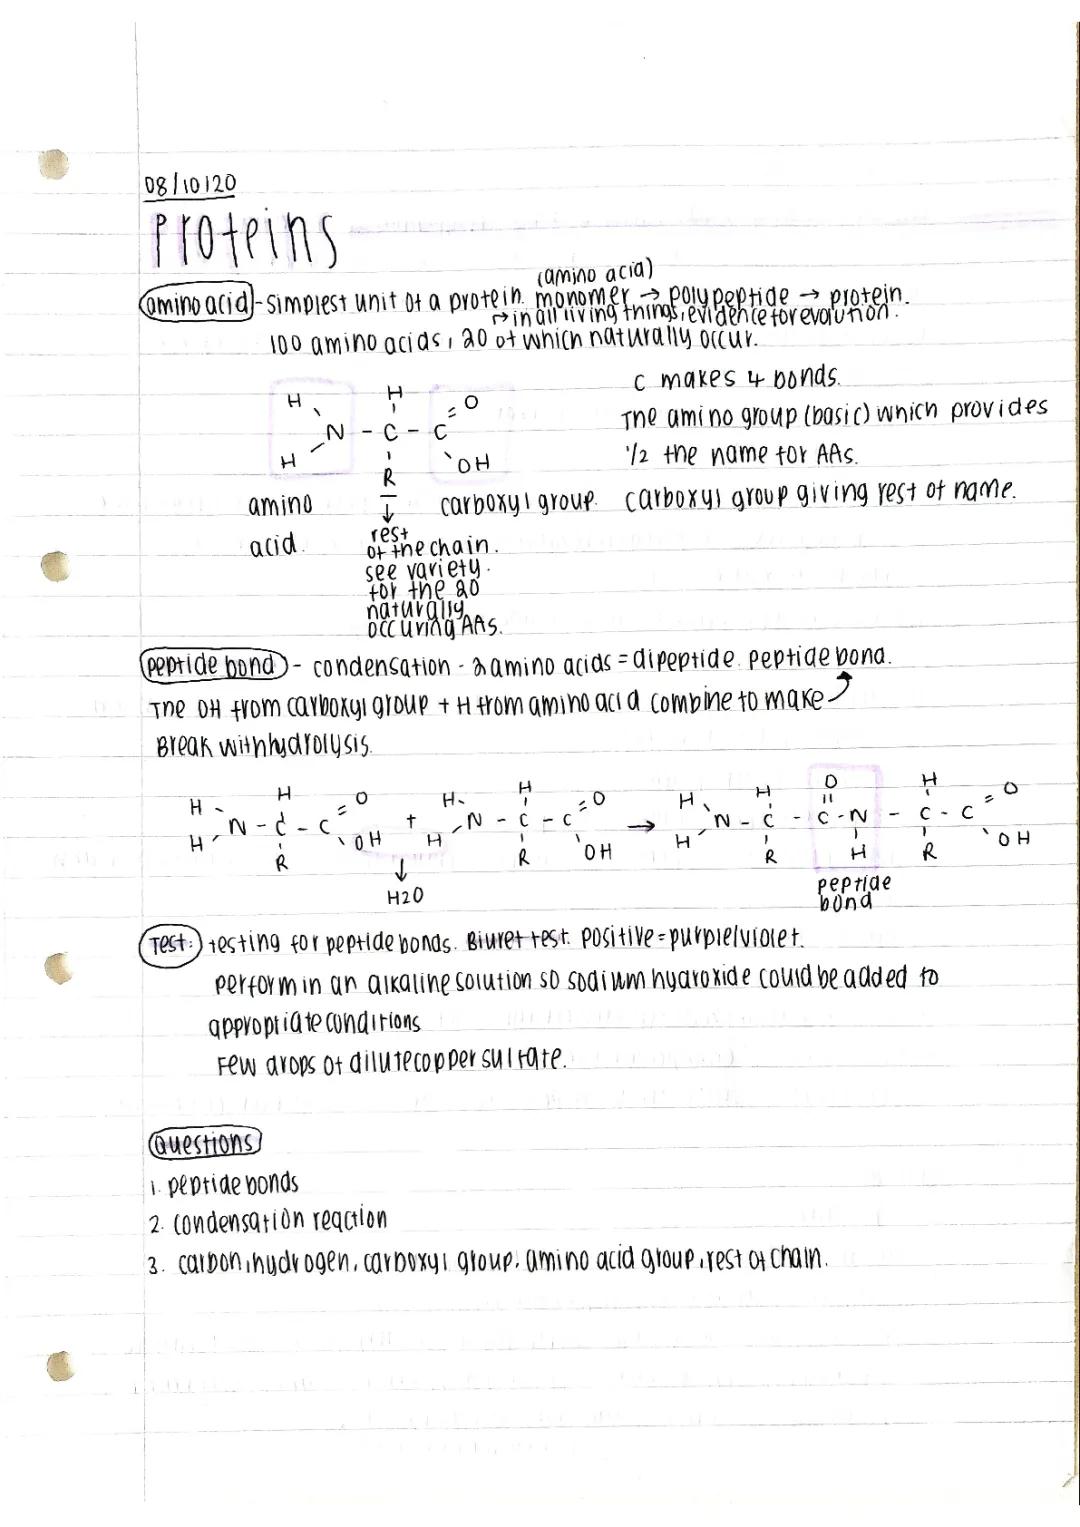 08/10/20
Proteins
(amino acid)
amino acid - simplest unit of a protein. monomer → polypeptide → protein.
→ in all living things, evidence for evolution.
100 amino acids, 20 of which naturally occur.
C makes 4 bonds.
The amino group (basic) which provides
1/2 the name for AAs.
carboxyl group giving rest of name.
H H
N - C - C = O
H R OH
amino
acid.
carboxyl group.
rest
of the chain.
see variety.
for the 20
naturally
occuring AAs.
peptide bond - condensation - 2 amino acids = dipeptide. peptide bond.
The OH from carboxyl group + H from amino acid combine to make
Break with hydrolysis.
H H O H H O H H O H O
N - C - C + N - C - C → N - C - C - N - C - C
H R OH H R OH H R H R OH
H2O
peptide
bond
Test: testing for peptide bonds. Biuret test. positive = purple/violet.
perform in an alkaline solution so sodium hydroxide could be added to
appropriate conditions
Few drops of dilute copper sulfate.
Questions
1. peptide bonds
2. condensation reaction
3. carbon, hydrogen, carboxyl group, amino acid group, rest of chain.